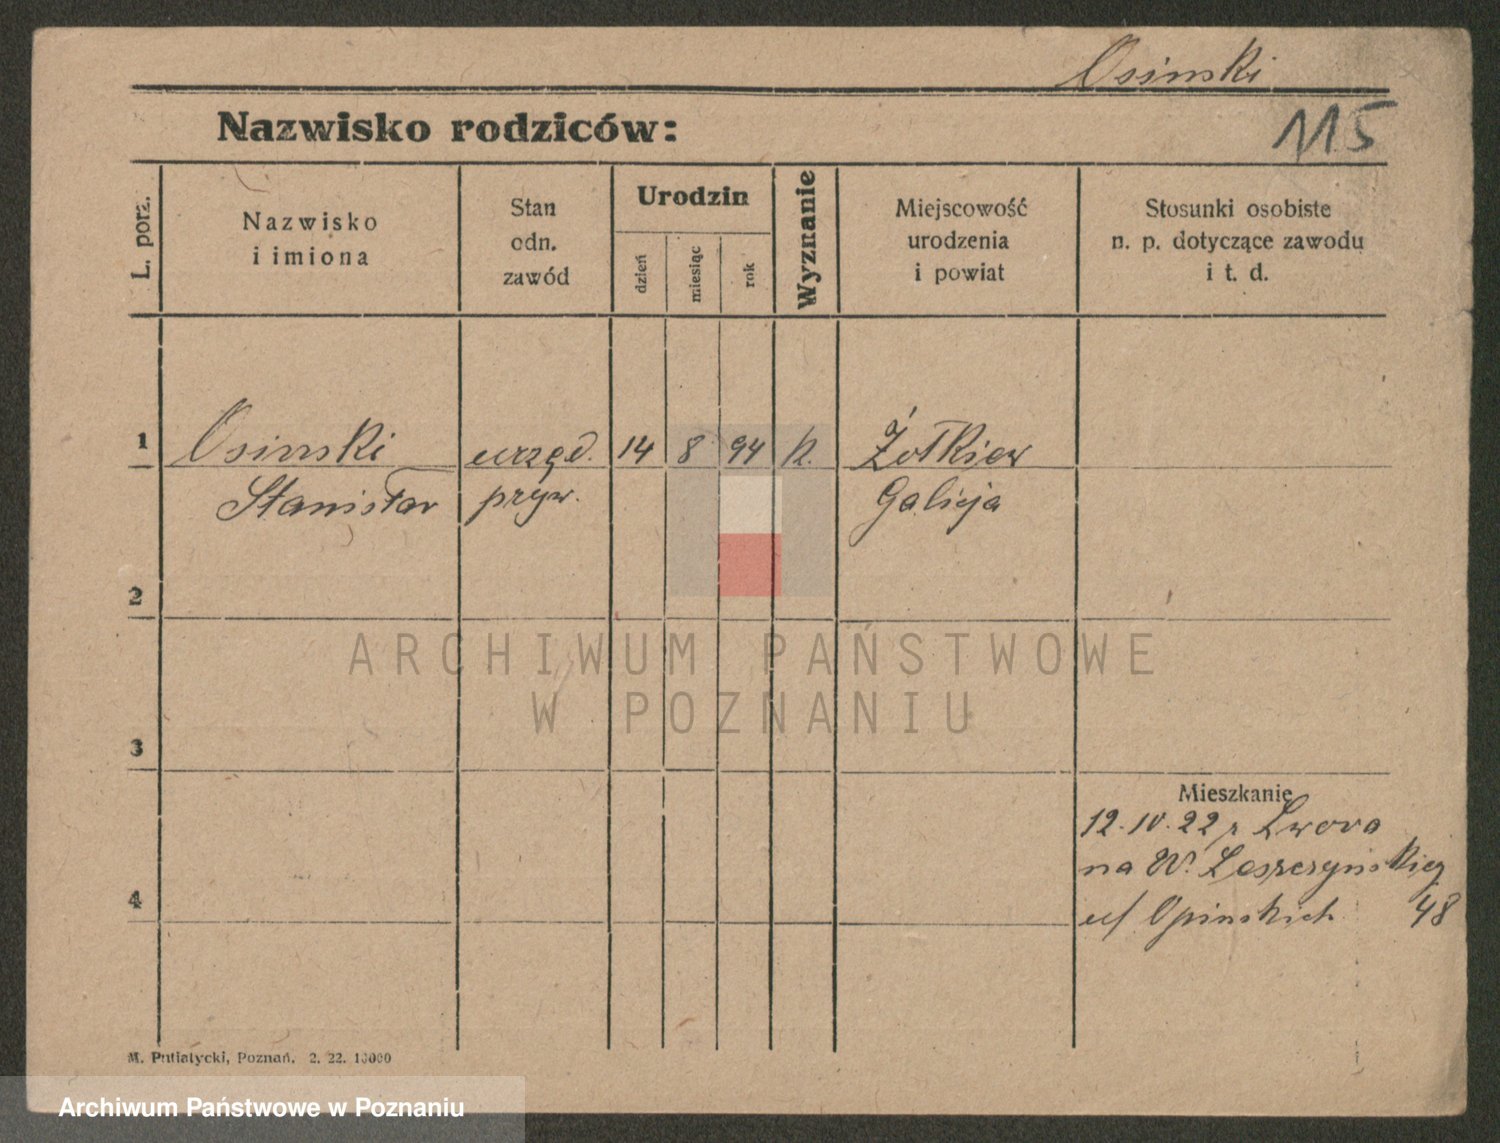 Osinski
115
Nazwisko rodziców:
L. porz.
Nazwisko
i imiona
Stan
odn.
zawód
Urodzin
dzień
miesiąc
rok
Wyznanie
Miejscowość
urodzenia
i powiat
Stosunki osobiste
n. p. dotyczące zawodu
i t. d.
1
Osinski
Stanisław
urzęd.
pryw.
14
8
94
k.
Żółkiew
Galicja
2
ARCHIWUM PAŃSTWOWE
W POZNANIU
3
Mieszkanie
12. IV. 22 z Lwowa
na W.
4
u/ Opinskich 48
M. Putiatycki, Poznań. 2. 22. 10000
Archiwum Państwowe w Poznaniu